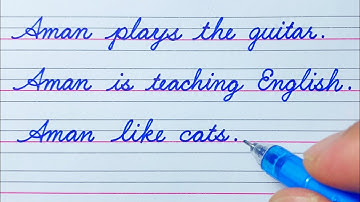 Aman plays the guitar.
Aman is teaching English.
Aman like cats.